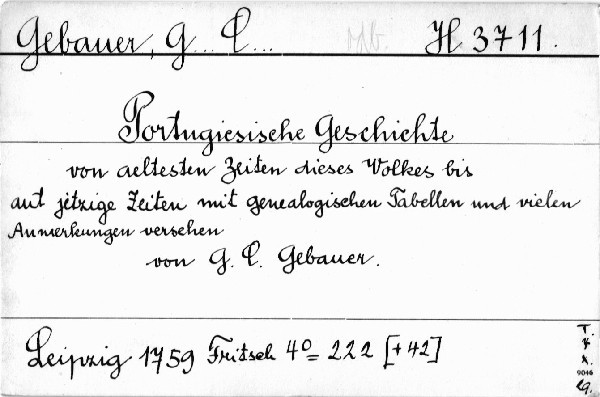 Gebauer, G... C... H 3711.
Portugiesische Geschichte
von aeltesten Zeiten dieses Wolkes bis
aut jetzige Zeiten mit genealogischen Tabellen und vielen
Anmerkungen versehen
von G. C. Gebauer.
Leipzig 1759 Fritsch 4º= 222 [+42]
9016